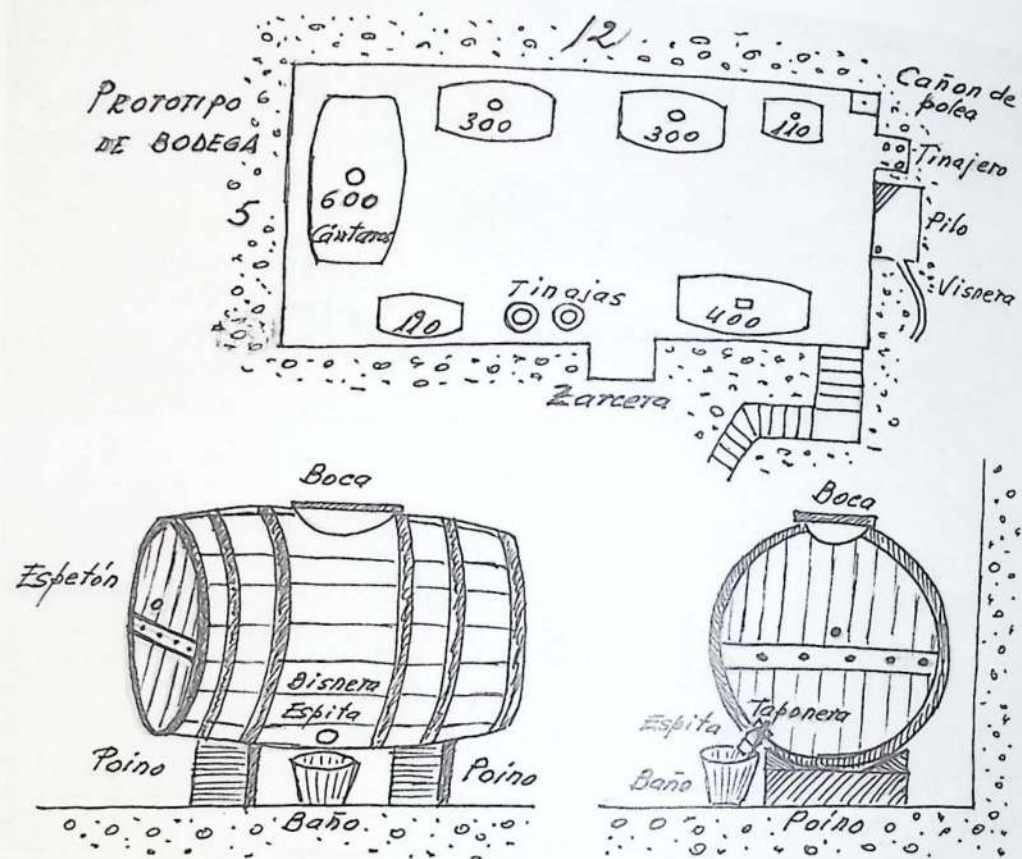 12
PROTOTIPO
DE BODEGA
5
600
Cántaros
300
300
110
Cañon de
polea
Tinajero
Pilo
Visnera
Tinajas
400
Zarcera
Boca
Espetón
Bisnera
Espita
Poino
Poino
Baño
Boca
Espita
Taponera
Baño
Poíno